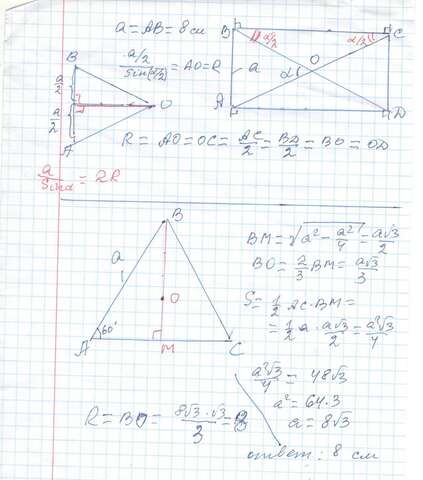 a = AB = 8 см
(a/2)/(sin(α/2)) = AO = R
B
a/2
a/2
O
A
B
α/2
α/2
C
a
α
O
A
D
R = AO = OC = AC/2 = BD/2 = BO = OD
a/sinα = 2R
B
a
O
60°
A
M
C
BM = √(a² - a²/4) = a√3/2
BO = 2/3 BM = a√3/3
S = 1/2 AC · BM =
= 1/2 a · a√3/2 = a²√3/4
a²√3/4 = 48√3
a² = 64·3
a = 8√3
R = BO = 8√3·√3/3 = 8
ответ: 8 см